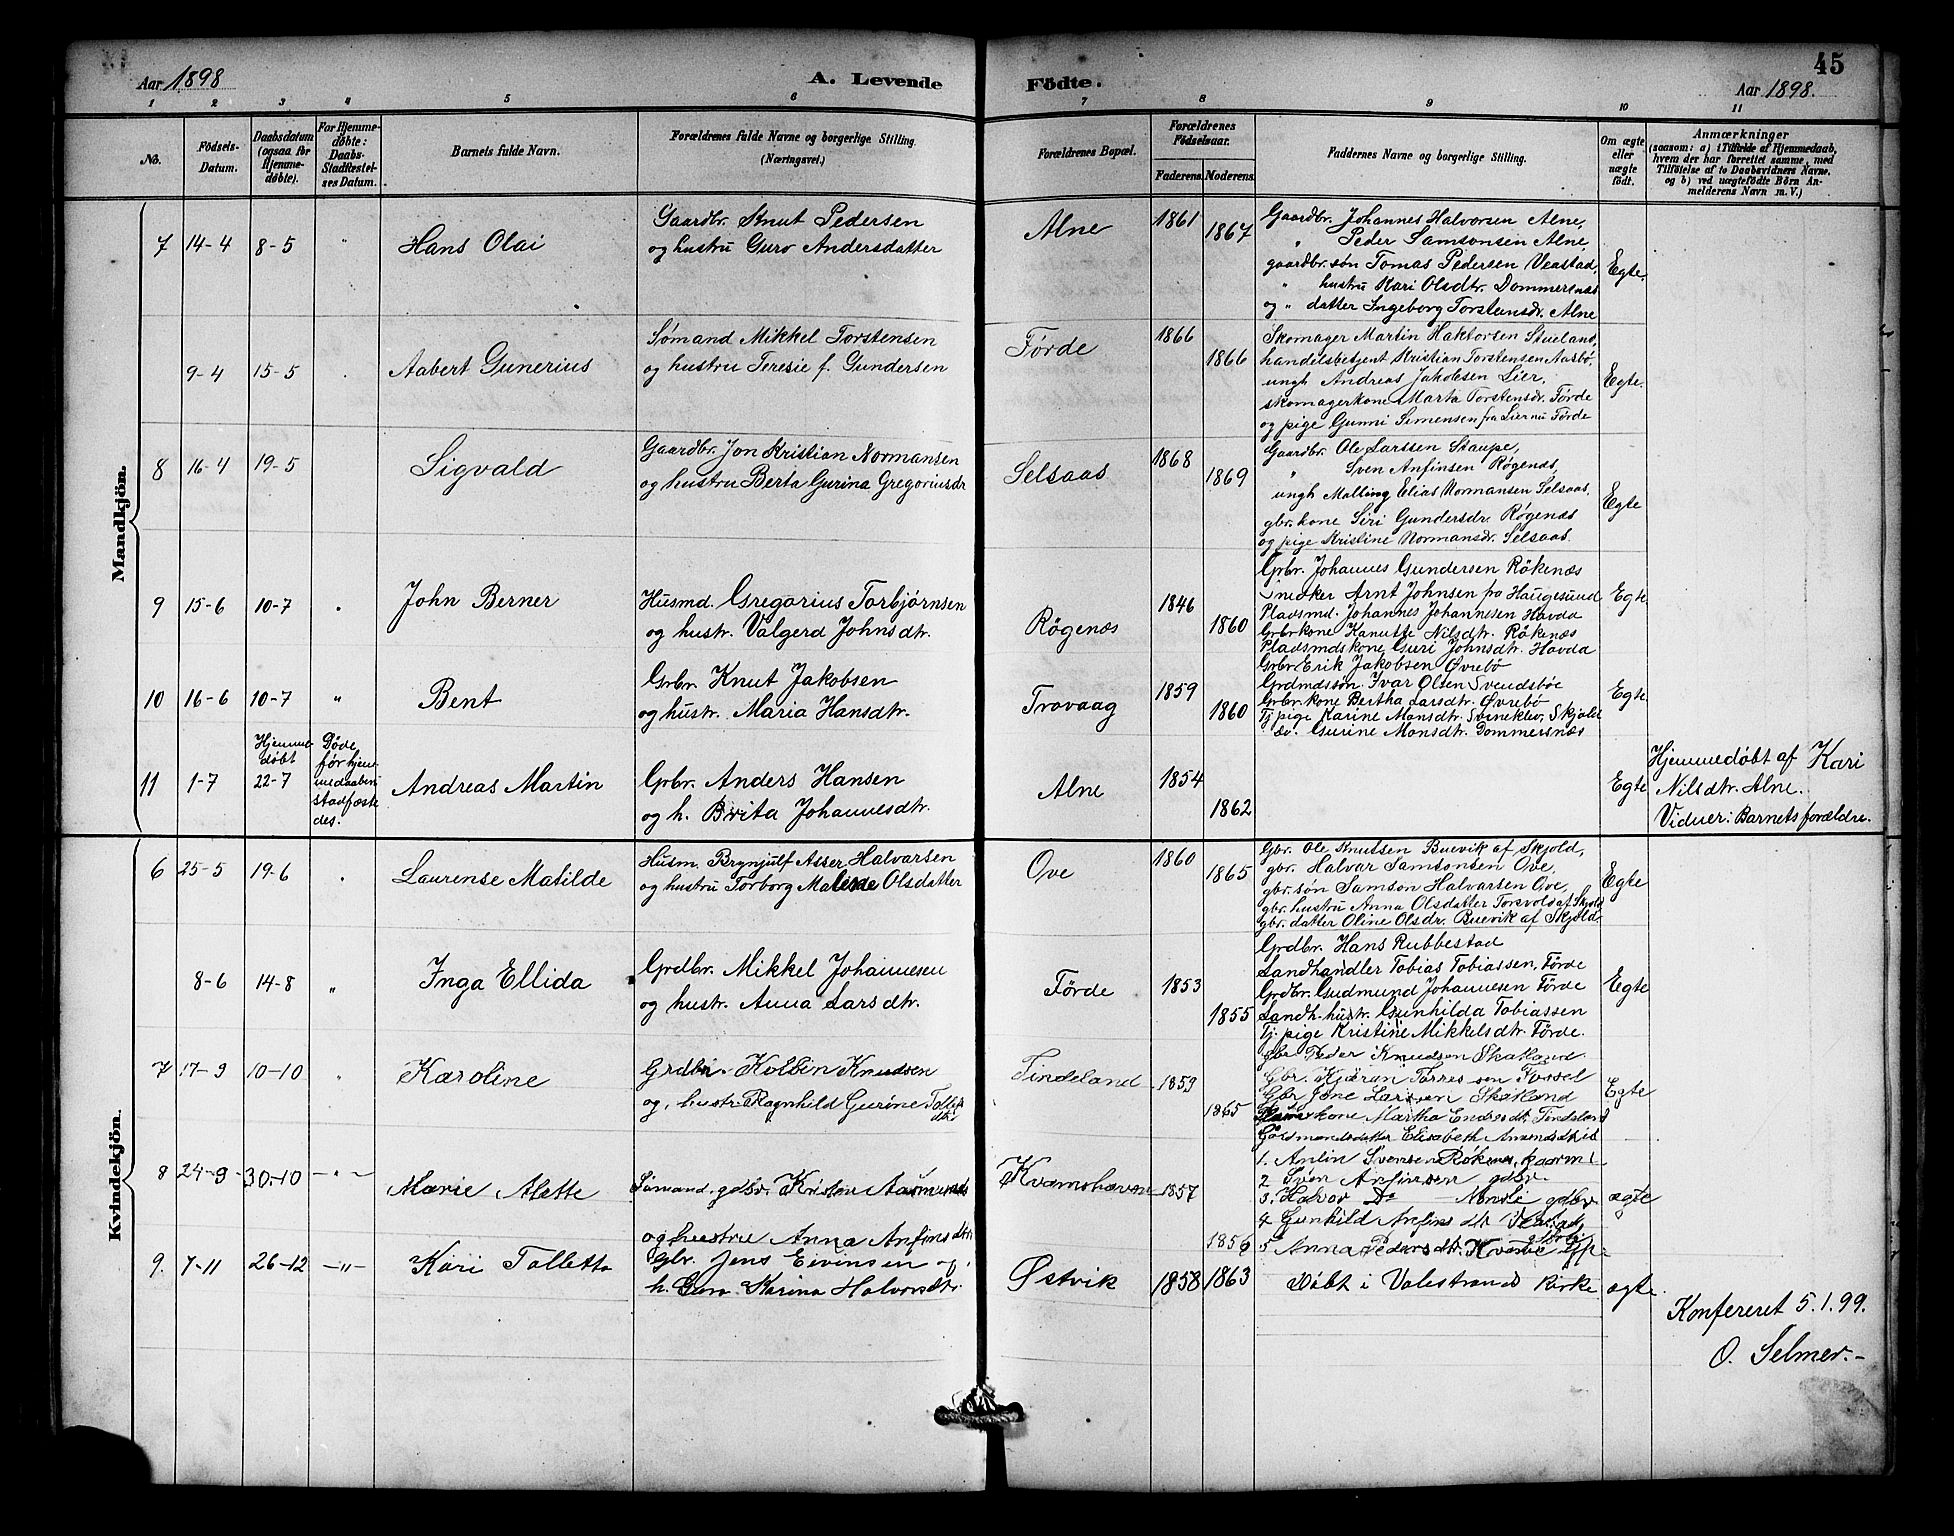 Aar 1898
A. Levende
Födte.
45
Aar 1898.
1 2 3 4 5 6 7 8 9 10 11
No.
Födsels-Datum.
Daabsdatum (ogsaa for Hjemmedøbte).
For Hjemmedøbte: Daabs-Stadfæstelses Datum.
Barnets fulde Navn.
Forældrenes fulde Navne og borgerlige Stilling. (Næringsvei.)
Forældrenes Bopæl.
Forældrenes Födselsaar.
Faderens. Moderens.
Faddernes Navne og borgerlige Stilling.
Om ægte eller uægte født.
Anmærkninger
(saasom: a) i Tilfælde af Hjemmedaab, hvem der har forrettet samme, med Tilföielse af to Daabsvidners Navne, og b) ved uægtefödte Börn Anmelderens Navn m. V.)
Mandkjön.
7 14-4 8-5 " Hans Olai
Gaardbr. Knut Pedersen
og hustru Guro Andersdatter
Alne 1861 1867
Gaardbr. Johannes Halvorsen Alne,
" Peder Samsonsen Alne,
gaardbr. søn Tomas Pedersen Veastad,
" hustru Kari Olsdtr. Dommersnæs
og " datter Ingeborg Torsteinsdr. Alne
Egte.
9-4 15-5 Aabert Gunerius
Sømand Mikkel Torstensen
og hustru Teresie f. Gundersen
Førde 1866 1866
Skomager Martin Haktorsen Stueland,
handelsbetjent Kristian Torstensen Aasbø,
ungk Andreas Jakobsen Lier,
skomagerkone Marta Torstensdr. Førde
og pige Gunni Simensen fra Lier nu Førde
Egte.
8 16-4 19-5 Sigvald
Gaardbr. Jon Kristian Normansen
og hustru Berta Gurina Gregoriusdr
Selsaas 1868 1869
Gaardbr. Ole Larssen Staupe,
" Sven Anfinsen Røgenæs,
ungk Malling Elias Normansen Selsaas,
gbr. kone Siri Gundersdr. Røgenæs
og pige Kristine Normansdr. Selsaas.
Egte
9 15-6 10-7 John Berner
Husmd. Gregorius Torbjørnsen
og hustr. Valgerd Johnsdtr.
Røgenæs 1846 1860
Grbr. Johannes Gundersen Rökenæs
Snedker Arnt Johnsen fra Haugesund
Pladsmd. Johannes Johannesen Havda
Grbrkone Kanutte Nilsdtr. Rökenæs
Pladsmdskone Guri Johnsdtr. Havda
Egte
10 16-6 10-7 " Bent
Grbr. Knut Jakobsen
og hustr. Maria Hansdtr.
Trovaag 1859 1860
Grbr. Erik Jakobsen Øvrebö
Grdmdssön. Ivar Olsen Svendsbøe
Grbr. kone Bertha Larsdtr. Øvrebö
Tj. pige Karine Monsdtr. Skjold
do. Gurine Monsdtr. Dommersnæs
Egte
11 1-7 Hjemmedøbt 22-7
Døde før hjemmedaaben stadfæstedes.
Andreas Martin
Grbr. Anders Hansen
og h. Brita Johannesdtr.
Alne 1854 1862
Egte
Hjemmedøbt af Kari
Nilsdtr. Alne.
Vidner: Barnets forældre.
Kvindekjön.
6 25-5 19-6 Laurense Matilde
Husm. Brynjulf Asser Halvarsen
og hustru Torborg Malene Olsdatter
Ove 1860 1865
Gbr. Ole Knutsen Buevik af Skjold,
gbr. Halvar Samsonsen Ove,
gbr. søn Samson Halvarsen Ove,
gbr. hustru Anna Olsdatter Torsvold af Skjold
gbr. datter Oline Olsdr. Buevik af Skjold
Egte
8-6 14-8 " Inga Ellida
Grdbr. Mikkel Johannesen
og hustr. Anna Larsdtr.
Førde 1853 1855
Grdbr. Hans Rubbestad
Landhandler Tobias Tobiassen, Førde
Grdbr. Gudmund Johannesen Førde
Landh. hustr. Gunhilda Tobiassen
Tj. pige Kristine Mikkelsdtr. Førde.
Egte
7 17-9 10-10 " Karoline
Grdbr. Kolbin Knudsen
og hustr. Ragnhild Gurine
Tindeland 1859 1865
Gbr Peder Knudsen Skatland
Gbr. Kjøran Fossel
Gbr Jone Larsen Skatland
kone Martha Tindeland
datter Elisabeth
Egte
8 24-9 30-10 -"- Marie Alette
Sömand. gdbr. Kristen
og hustru Anna Anfinsdtr.
Kvamshavn 1857 1856
1. Anfin Svensen Røkenes,
2 Sven Anfinsen gdbr.
3. Halvor Do gdbr
4 Gunhild Anfinsdtr.
5 Anna Pedersdtr.
ægte
9. 7-11 26-12 -"- Kari Tolletta
Gbr. Jens Eivinsen og
h. Guro Karina Halvorsdtr.
Østvik 1858 1863
Döbt i Valestrand Kirke
ægte.
Konfereret 5.1.99.
O. Selmer.-